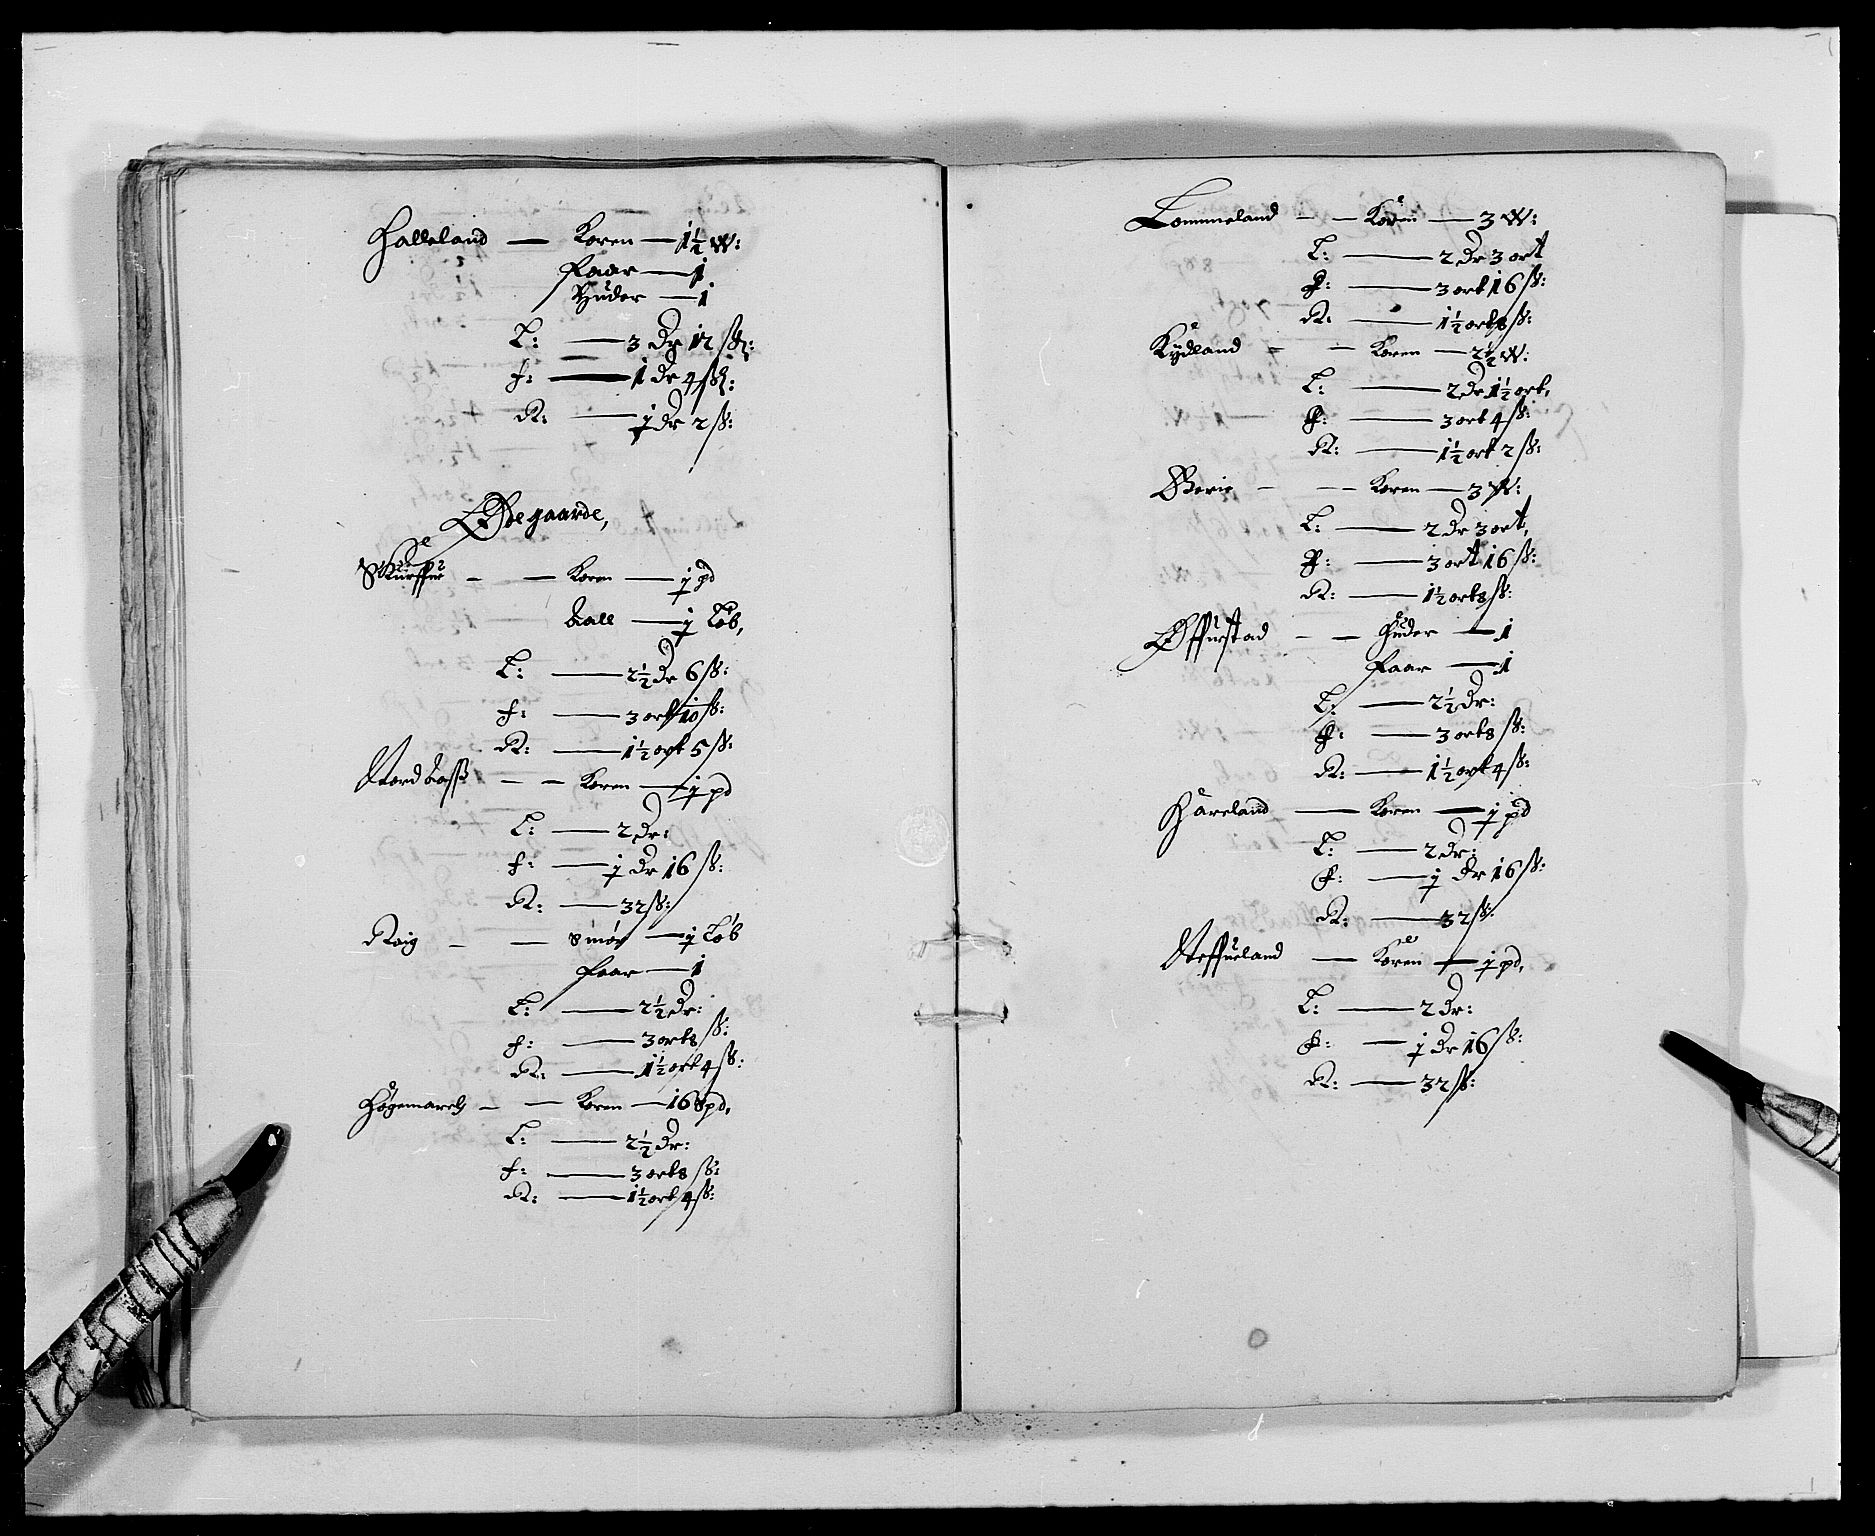 Halleland — Koren — 1½ W:
Faar — 1
Huder — 1
L: — 3 Dr 12 ß:
f: — 1 dr 4 ß:
R: — j dr 2 ß:
Ødegaarde,
Skurffue — — Koren — j pd
Kall — j Løb,
L: — 2½ Dr 6 ß:
f: — 3 ort 10 ß:
R: — 1½ ort 5 ß:
Nord — — Koren — j pd
L: — 2 Dr:
f: — j Dr 16 ß:
R: — 32 ß:
Roig — — Smør — j Løb
Faar — 1
L: — 2½ Dr:
f: — 3 ort 8 ß:
R: — 1½ ort 4 ß:
Høgemarck — — Koren — 16 Spd,
L: — 2½ Dr:
f: — 3 ort 8 ß:
R: — 1½ ort 4 ß:
Lommeland — — Koren — 3 W:
L: — 2 Dr 3 ort
F: — 3 ort 16 ß:
R: — 1½ ort 8 ß:
Kydland — — Koren — 2½ W:
L: — 2 Dr 1½ ort,
F: — 3 ort 4 ß:
R: — 1½ ort 2 ß:
Berie — — Koren — 3 W:
L: — 2 Dr 3 ort,
F: — 3 ort 16 ß:
R: — 1½ ort 8 ß:
Øffurstad — — Huder — 1
Faar — 1
L: — 2½ Dr:
F: — 3 ort 8 ß:
R: — 1½ ort 4 ß:
Häreland — Koren — j pd
L: — 2 Dr:
F: — j Dr 16 ß:
R: — 32 ß:
Neffueland — Koren — j pd,
L: — 2 Dr:
F: — j Dr 16 ß:
R: — 32 ß: